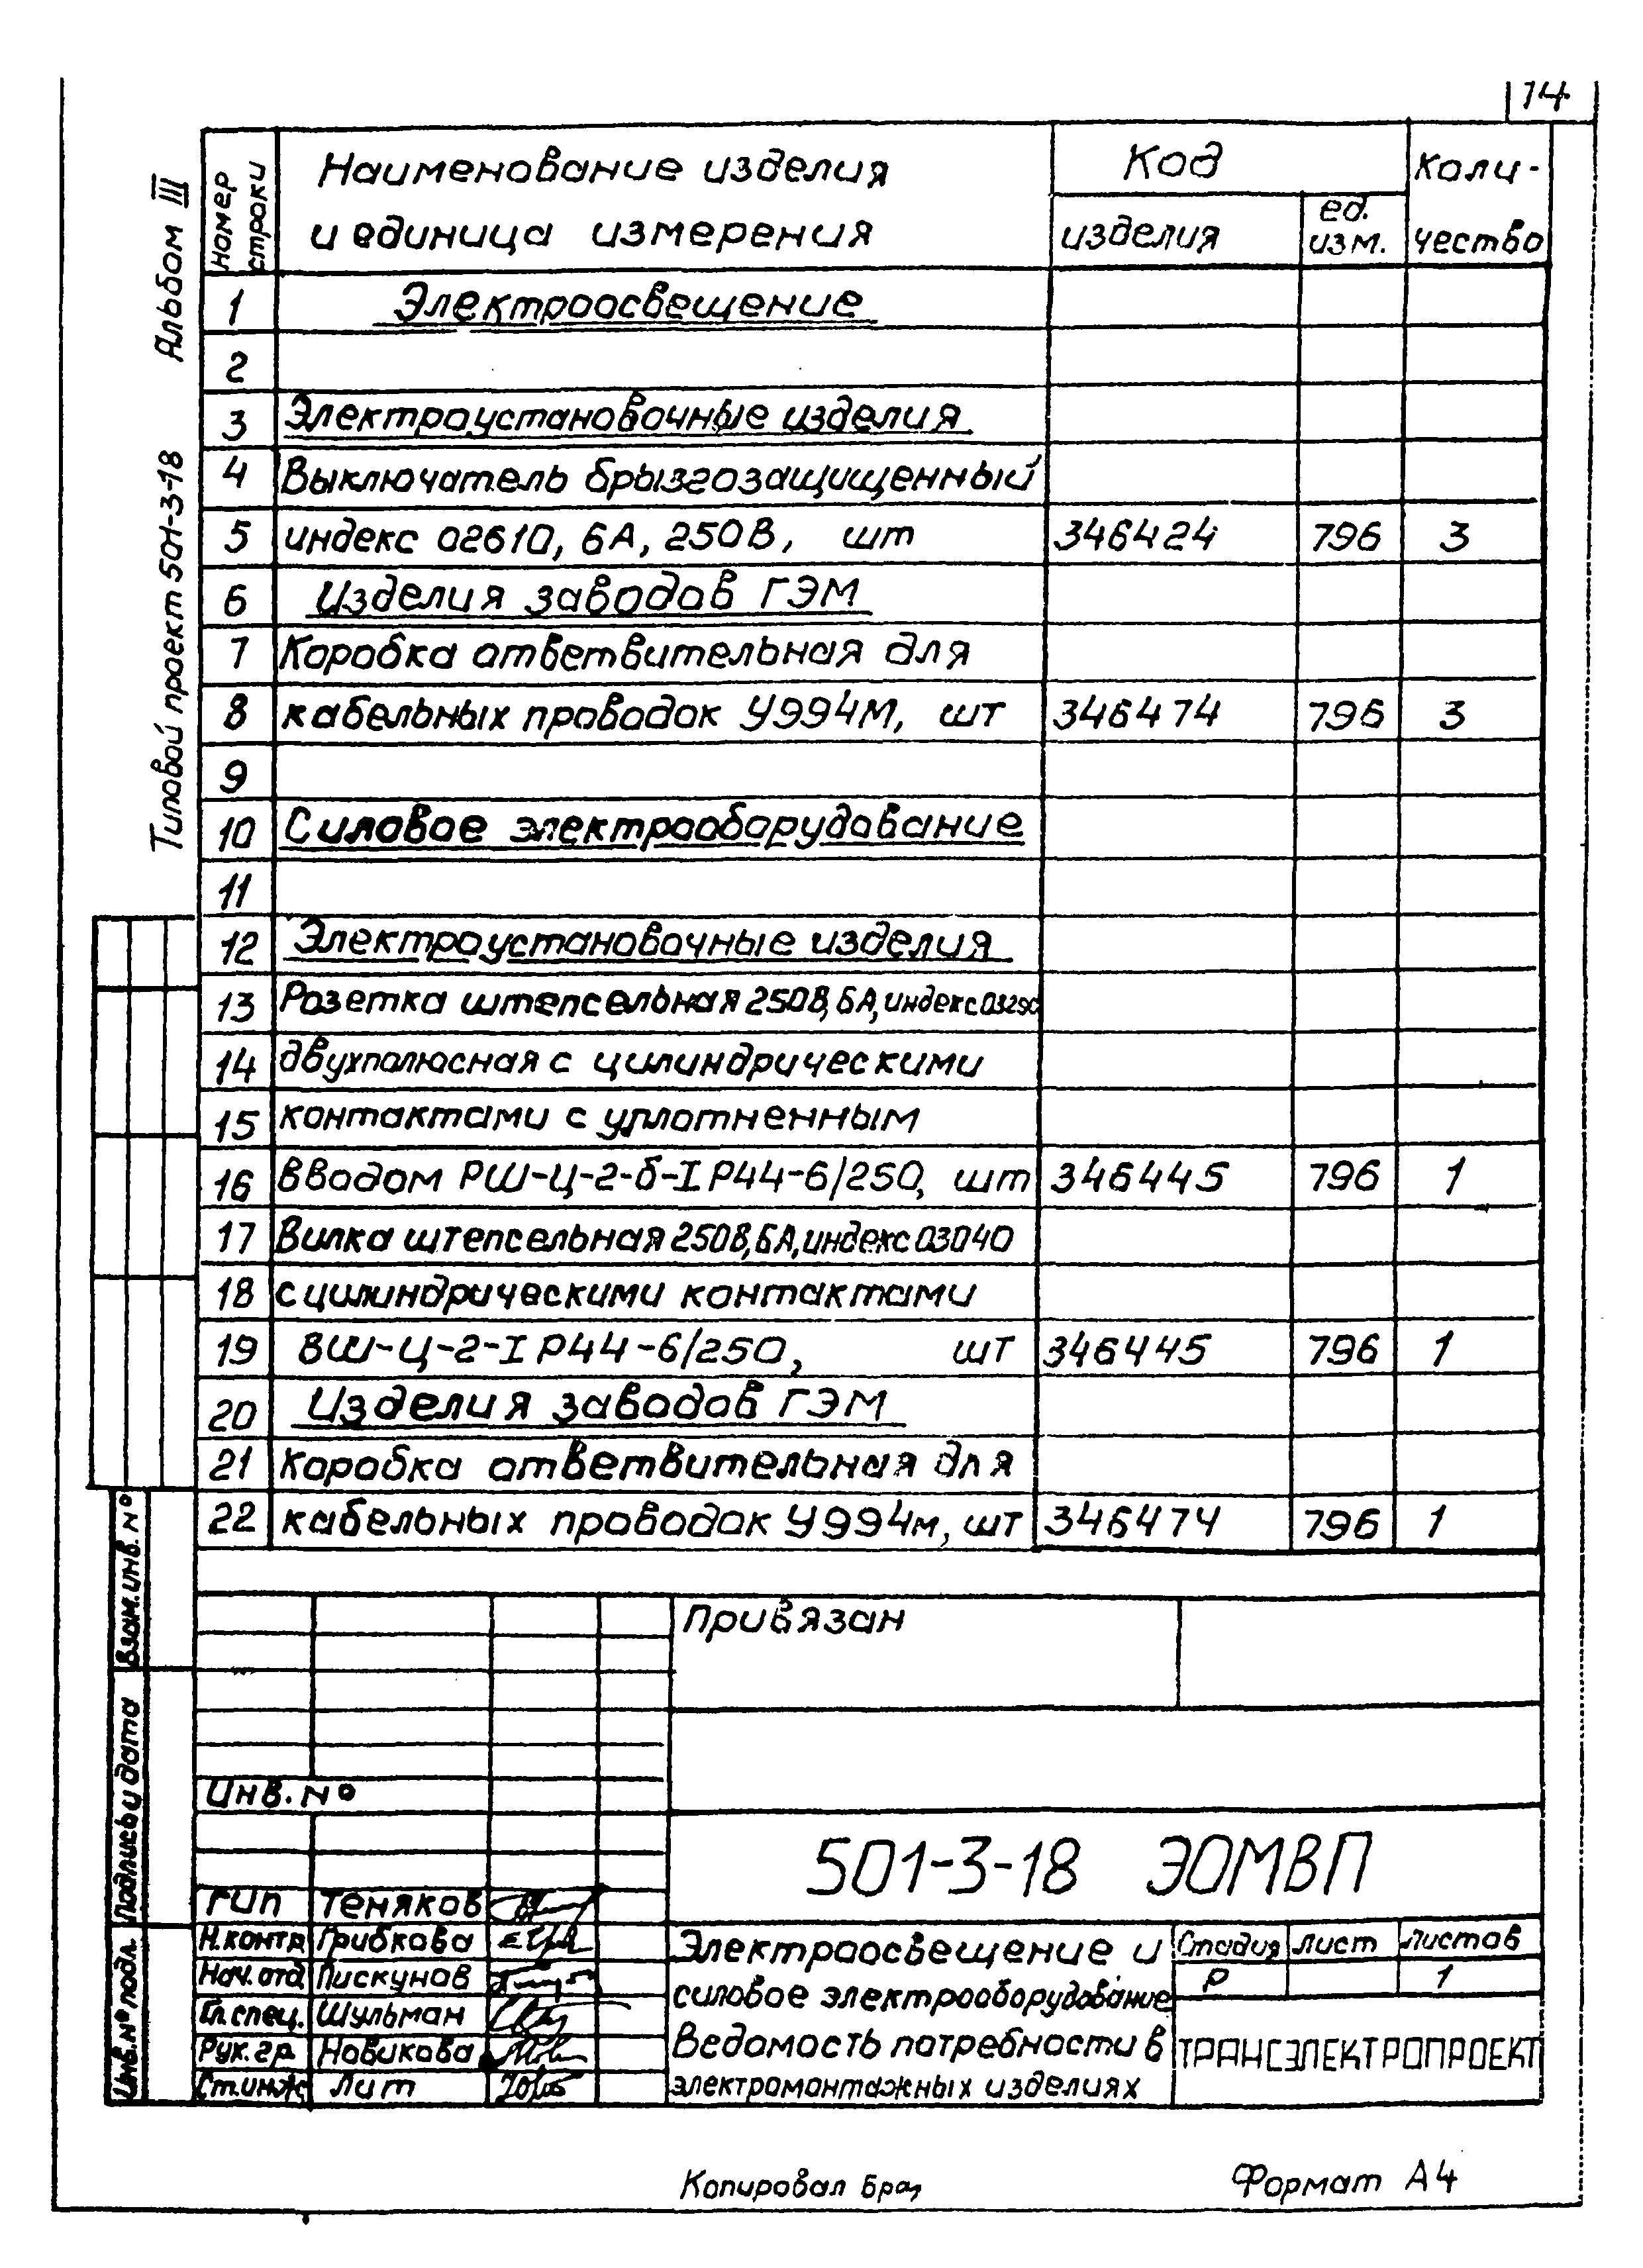 14
Альбом III
Типовой проект 501-3-18
Номер строки
Наименование изделия
и единица измерения
Код
изделия
ед. изм.
Коли-
чество
1 Электроосвещение
2
3 Электроустановочные изделия
4 Выключатель брызгозащищенный
5 индекс 02610, 6А, 250В, шт 346424 796 3
6 Изделия заводов ГЭМ
7 Коробка ответвительная для
8 кабельных проводок У994М, шт 346474 796 3
9
10 Силовое электрооборудование
11
12 Электроустановочные изделия
13 Розетка штепсельная 250В, 6А, индекс 03290
14 двухполюсная с цилиндрическими
15 контактами с уплотненным
16 вводом РШ-Ц-2-б-IР44-6/250, шт 346445 796 1
17 Вилка штепсельная 250В, 6А, индекс 03040
18 с цилиндрическими контактами
19 ВШ-Ц-2-IР44-6/250, шт 346445 796 1
20 Изделия заводов ГЭМ
21 Коробка ответвительная для
22 кабельных проводок У994м, шт 346474 796 1
Взам. инв. №
Подпись и дата
Инв. № подл.
Привязан
Инв. №
501-3-18 ЭОМВП
ГИП Теняков
Н.контр Грибкова
Нач. отд Пискунов
Гл. спец. Шульман
Рук. гр Новикова
Ст. инж Лит
Электроосвещение и
силовое электрооборудование
Ведомость потребности в
электромонтажных изделиях
Стадия Лист Листов
Р 1
ТРАНСЭЛЕКТРОПРОЕКТ
Копировал
Формат А4